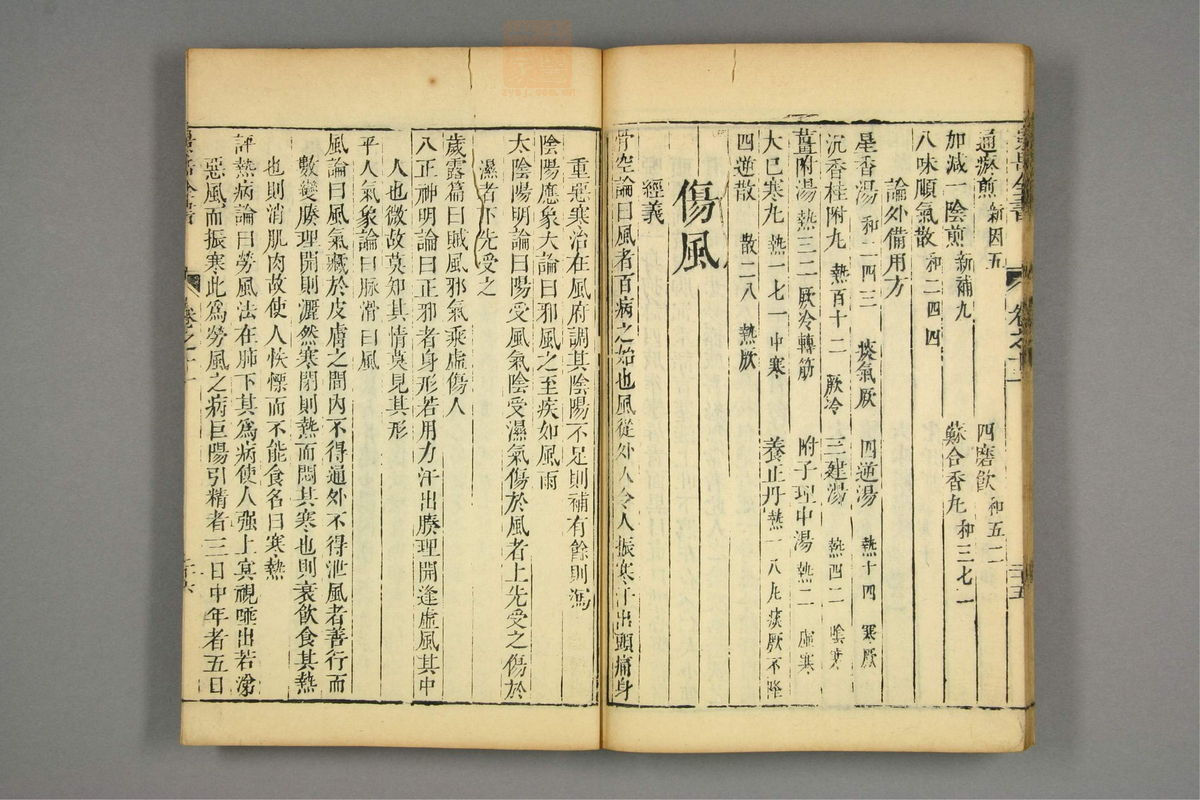 通瘀煎 新因五 四磨飲 和五二
加減一陰煎 新補九 蘇合香丸 和三七一
八味順氣散 和二四四
論外備用方
星香湯 和二四三 痰氣厥 四逆湯 熱十四 寒厥
沉香桂附丸 熱百十二 厥冷 三建湯 熱四二 陰寒
薑附湯 熱三二 厥冷轉筋 附子理中湯 熱二 虛寒
大已寒丸 熱一七一 中寒 養正丹 熱一八九 痰厥不降
四逆散 散二八 熱厥
傷風
經義
骨空論曰風者百病之始也風從外入令人振寒汗出頭痛身
重惡寒治在風府調其陰陽不足則補有餘則瀉
陰陽應象大論曰邪風之至疾如風雨
太陰陽明論曰陽受風氣陰受濕氣傷於風者上先受之傷於
濕者下先受之
歲露篇曰賊風邪氣乘虛傷人
八正神明論曰正邪者身形若用力汗出腠理開逢虛風其中
人也微故莫知其情莫見其形
平人氣象論曰脉滑曰風
風論曰風氣藏於皮膚之間內不得通外不得泄風者善行而
數變腠理開則灑然寒閉則熱而悶其寒也則衰飲食其熱
也則消肌肉故使人怢慄而不能食名曰寒熱
評熱病論曰勞風法在肺下其為病使人强上冥視唾出若涕
惡風而振寒此為勞風之病巨陽引精者三日中年者五日
景岳全書
卷之十一
三十五